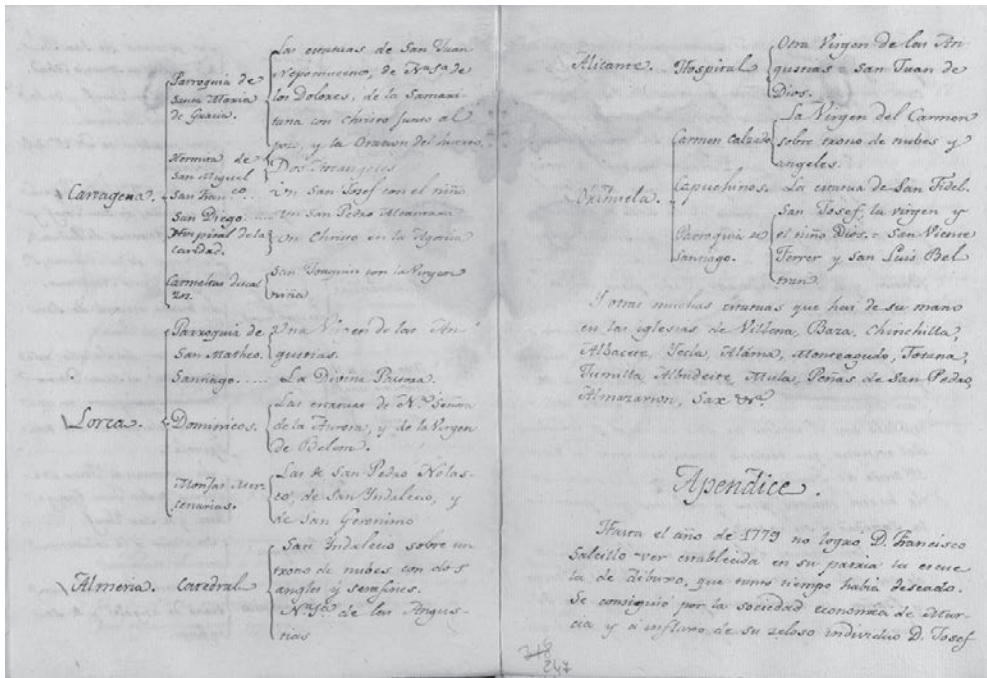 Cartagena.
Parroquia de
Santa Maria
de Gracia.
Las estatuas de San Juan
Nepomuceno, de Nª Sª de
los Dolores, de la Samari-
tana con Christo junto al
pozo, y la Oracion del huerto.
Hermita de
San Miguel
Dos Arcangeles
San Fran.co
Un San Josef con el niño
San Diego....
Un San Pedro Alcantara
Hospital de la
caridad.
Un Christo en la Agonia
Carmelitas descal
zos.
San Joaquin con la Virgen
niña
Lorca.
Parroquia de
San Matheo.
Una Virgen de las An-
gustias.
Santiago.....
La Divina Pastora.
Dominicos.
Las estatuas de Nª Señora
de la Aurora, y de la Virgen
de Belem.
Monjas Mer-
cenarias.
Las de San Pedro Nolas-
co, de San Yndalecio, y
de San Geronimo
Almeria.
Catedral
San Yndalecio sobre un
trono de nubes con dos
angles y serafines.
Nª Sª de las Angus-
tias
Alicante.
Hospital
Otra Virgen de las An-
gustias = San Juan de
Dios.
Orihuela.
Carmen Calzado
La Virgen del Carmen
sobre trono de nubes y
angeles.
Capuchinos.
La estatua de San Fidel.
Parroquia de
Santiago.
San Josef, la virgen y
el niño Dios. = San Vicente
Ferrer y San Luis Bel
tran.
Y otras muchas estatuas que hai de su mano
en las iglesias de Villena, Baza, Chinchilla,
Albacete, Yecla, Aláma, Monteagudo, Totana,
Jumilla Albudeite, Mula, Peñas de San Pedro,
Almazarron, Sax &ª.
Apendice.
Hasta el año de 1779 no logró D. Francisco
Salcillo ver establecida en su patria la escue
la de dibuxo, que tanto tiempo habia deseado.
Se consiguió por la sociedad economica de Mur-
cia y á influxo de su zeloso individuo D. Josef
247